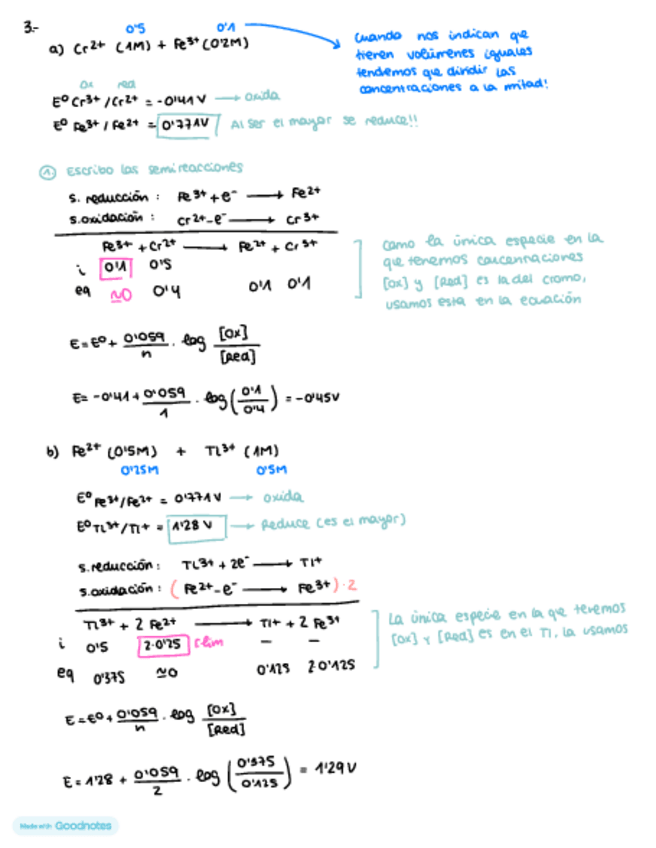 3.-
0'5 0'1
a) Cr2+ (1M) + Fe3+ (0'2M)
Cuando nos indican que
tienen volúmenes iguales
tendemos que dividir las
concentraciones a la mitad!
ox red
Eº Cr3+/Cr2+ = -0'41 V → oxida
Eº Fe3+/Fe2+ = 0'771V Al ser el mayor se reduce!!
① Escribo las semireacciones
s. reducción: Fe3+ + e- → Fe2+
s.oxidación: Cr2+ - e- → Cr3+
Fe3+ + Cr2+ → Fe2+ + Cr3+
i 0'1 0'5
eq ≈0 0'4 0'1 0'1
Como la única especie en la
que tenemos concentraciones
[Ox] y [Red] es la del cromo,
usamos esta en la ecuación
E=Eº+ 0'059/n . log [Ox]/[Red]
E= -0'41 + 0'059/1 . log (0'1/0'4) = -0'45V
b) Fe2+ (0'5M) + TL3+ (1M)
0'25M 0'5M
Eº Fe3+/Fe2+ = 0'771V → oxida
Eº TL3+/Tl+ = 1'28 V → Reduce (es el mayor)
s.reducción: TL3+ + 2e- → Tl+
s.oxidación: (Fe2+ - e- → Fe3+)·2
Tl3+ + 2 Fe2+ → Tl+ + 2 Fe3+
i 0'5 2·0'25 R.lim - -
eq 0'375 ≈0 0'125 2·0'125
La única especie en la que tenemos
[Ox] y [Red] es en el Tl, la usamos
E=Eº+ 0'059/n . log [Ox]/[Red]
E= 1'28 + 0'059/2 . log (0'375/0'125) = 1'29V
Made with Goodnotes